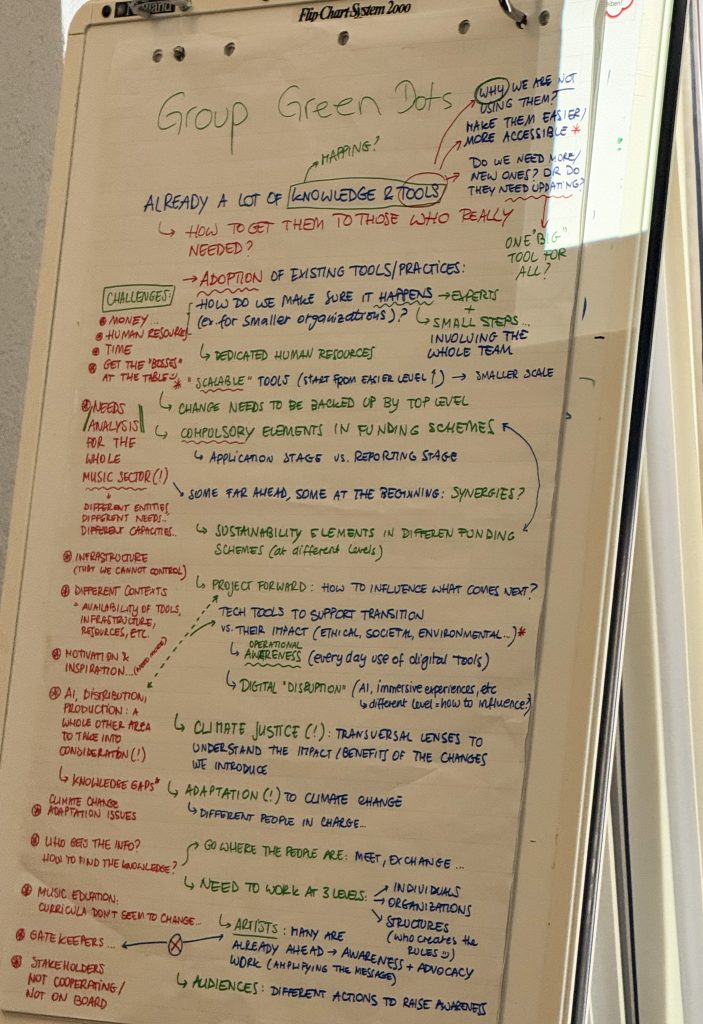 Flip-Chart System 2000
Group Green Dots
MAPPING?
WHY WE ARE NOT
USING THEM?
MAKE THEM EASIER/
MORE ACCESSIBLE *
DO WE NEED MORE/
NEW ONES? OR DO
THEY NEED UPDATING?
ONE "BIG"
TOOL FOR
ALL?
ALREADY A LOT OF KNOWLEDGE & TOOLS
↳ HOW TO GET THEM TO THOSE WHO REALLY
NEEDED?
→ ADOPTION OF EXISTING TOOLS/PRACTICES:
HOW DO WE MAKE SURE IT HAPPENS → EXPERTS
(ex for smaller organizations)?
+
↳ SMALL STEPS...
INVOLVING THE
WHOLE TEAM
↳ DEDICATED HUMAN RESOURCES
* "SCALABLE" TOOLS (START FROM EASIER LEVEL ↑) → SMALLER SCALE
↳ CHANGE NEEDS TO BE BACKED UP BY TOP LEVEL
↳ COMPULSORY ELEMENTS IN FUNDING SCHEMES
↳ APPLICATION STAGE VS. REPORTING STAGE
↘ SOME FAR AHEAD, SOME AT THE BEGINNING: SYNERGIES?
↳ SUSTAINABILITY ELEMENTS IN DIFFEREN FUNDING
SCHEMES (at different levels)
↳ PROJECT FORWARD: HOW TO INFLUENCE WHAT COMES NEXT?
TECH TOOLS TO SUPPORT TRANSITION
VS. THEIR IMPACT (ETHICAL, SOCIETAL, ENVIRONMENTAL...) *
OPERATIONAL
↳ AWARENESS (every day use of digital tools)
↳ DIGITAL "DISRUPTION" (AI, immersive experiences, etc
↳ different level = how to influence?)
↳ CLIMATE JUSTICE (!): TRANSVERSAL LENSES TO
UNDERSTAND THE IMPACT/BENEFITS OF THE CHANGES
WE INTRODUCE
↳ ADAPTATION (!) TO CLIMATE CHANGE
↳ DIFFERENT PEOPLE IN CHARGE...
GO WHERE THE PEOPLE ARE: MEET, EXCHANGE ...
↳ NEED TO WORK AT 3 LEVELS:
INDIVIDUALS
→ ORGANIZATIONS
STRUCTURES
(who creates the
RULES)
↳ ARTISTS: MANY ARE
ALREADY AHEAD → AWARENESS + ADVOCACY
WORK (AMPLIFYING THE MESSAGE)
↳ AUDIENCES: DIFFERENT ACTIONS TO RAISE AWARENESS
CHALLENGES:
MONEY...
HUMAN RESOURCES
TIME
GET THE "BOSSES"
AT THE TABLE
NEEDS
ANALYSIS
FOR THE
WHOLE
MUSIC SECTOR(!)
↓
DIFFERENT ENTITIES
DIFFERENT NEEDS..
DIFFERENT CAPACITIES..
INFRASTRUCTURE
(THAT WE CANNOT CONTROL)
DIFFERENT CONTEXTS
AVAILABILITY OF TOOLS,
INFRASTRUCTURE,
RESOURCES, ETC.
MOTIVATION &
INSPIRATION...(NEED MORE)
AI, DISTRIBUTION,
PRODUCTION: A
WHOLE OTHER AREA
TO TAKE INTO
CONSIDERATION (!)
↳ KNOWLEDGE GAPS*
CLIMATE CHANGE
ADAPTATION ISSUES
WHO GETS THE INFO?
HOW TO FIND THE KNOWLEDGE?
MUSIC EDUATION:
CURRICULA DON'T SEEM TO CHANGE...
GATEKEEPERS...
STAKEHOLDERS
NOT COOPERATING/
NOT ON BOARD